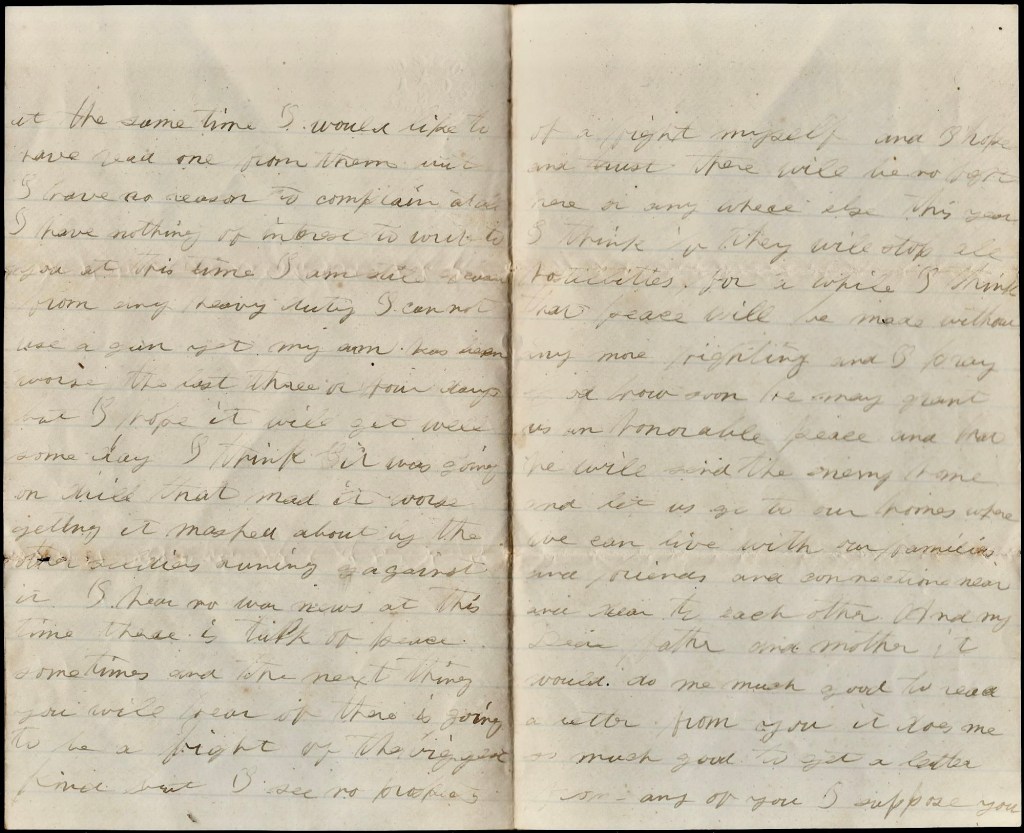 at the same time I would like to
have read one from them but
I have no reason to complain at all
I have nothing of intrest to write to
you at this time I am still
from any heavy duty I can not
use a gun yet my arm has been
worse the last three or four days
but I hope it will get well
some day I think it was going
on drill that mad it worse
getting it mashed about by the
other runing against
it I hear no war news at this
time there is talk of peace
sometimes and the next thing
you will hear of there is going
to be a fight of the biggest
kind but I see no
of a fight myself and I hope
and trust there will be no fight
here or any where else this year
I think if they will stop all
hostilities for a while I think
that peace will be made without
any more fighting and I pray
god how soon he may grant
us an honorable peace and that
he will send the enemy home
and let us go to our homes where
we can live with our families
and friends and connections near
and dear to each other And my
Dear father and mother it
would do me much good to read
a letter from you it does me
so much good to get a letter
from any of you I suppose you